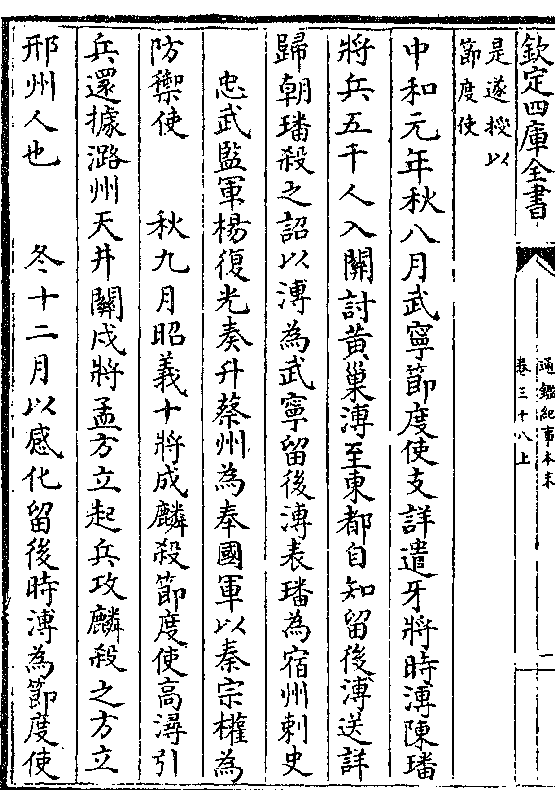 欽定四庫全書
通鑑紀事本末
卷三十八上
一
是遂授以
節度使
中和元年秋八月武寧節度使支詳遣牙將時溥陳璠
將兵五千人入關討黃巢溥至東都自知留後溥送詳
歸朝璠殺之詔以溥為武寧留後溥表璠為宿州刺史
忠武監軍楊復光奏升蔡州為奉國軍以秦宗權為
防禦使　秋九月昭義十將成麟殺節度使高潯引
兵還據潞州天井關戍將孟方立起兵攻麟殺之方立
邢州人也　冬十二月以感化留後時溥為節度使